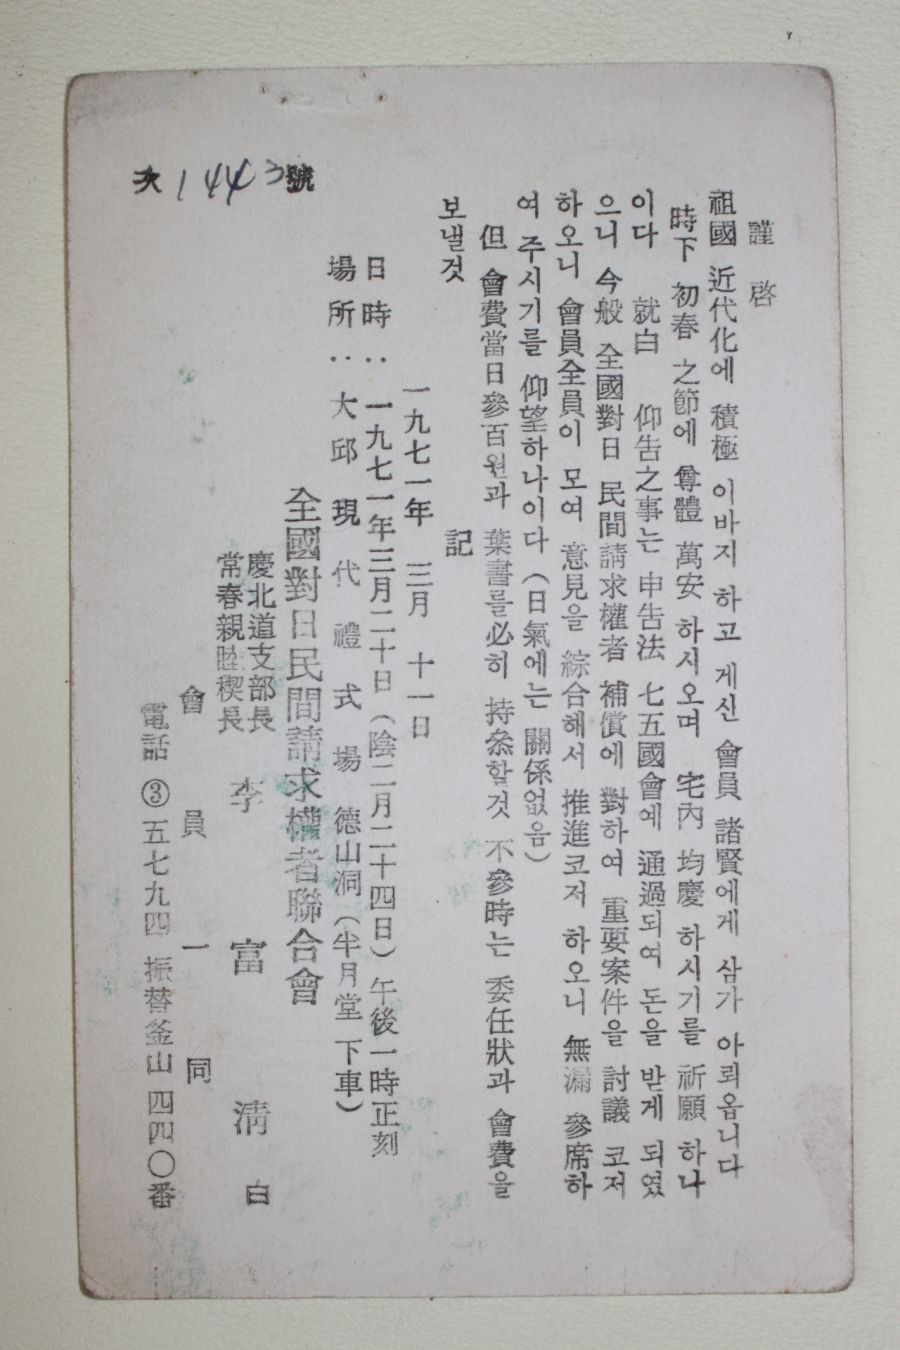 謹啓
祖國 近代化에 積極 이바지 하고 게신 會員 諸賢에게 삼가 아뢰옵니다
時下 初春 之節에 尊體 萬安 하시오며 宅內 均慶 하시기를 祈願 하나
이다 就白 仰告之事는 申告法 七五國會에 通過되여 돈을 받게 되였
으니 今般 全國對日 民間請求權者 補償에 對하여 重要案件을 討議 코저
하오니 會員全員이 모여 意見을 綜合해서 推進코저 하오니 無漏 參席하
여 주시기를 仰望하나이다 (日氣에는 關係없음)
但 會費當日參百원과 葉書를必히 持參할것 不參時는 委任狀과 會費을
보낼것
記
一九七一年 三月 十一日
日時 : 一九七一年三月二十日 (陰二月二十四日) 午後一時正刻
場所 : 大邱 現代禮式場 德山洞 (半月堂 下車)
全國對日民間請求權者聯合會
慶北道支部長
常春親睦稧長
李富淸白
會員一同
電話 ③ 五七九四 振替釜山 四四〇番
次1443號